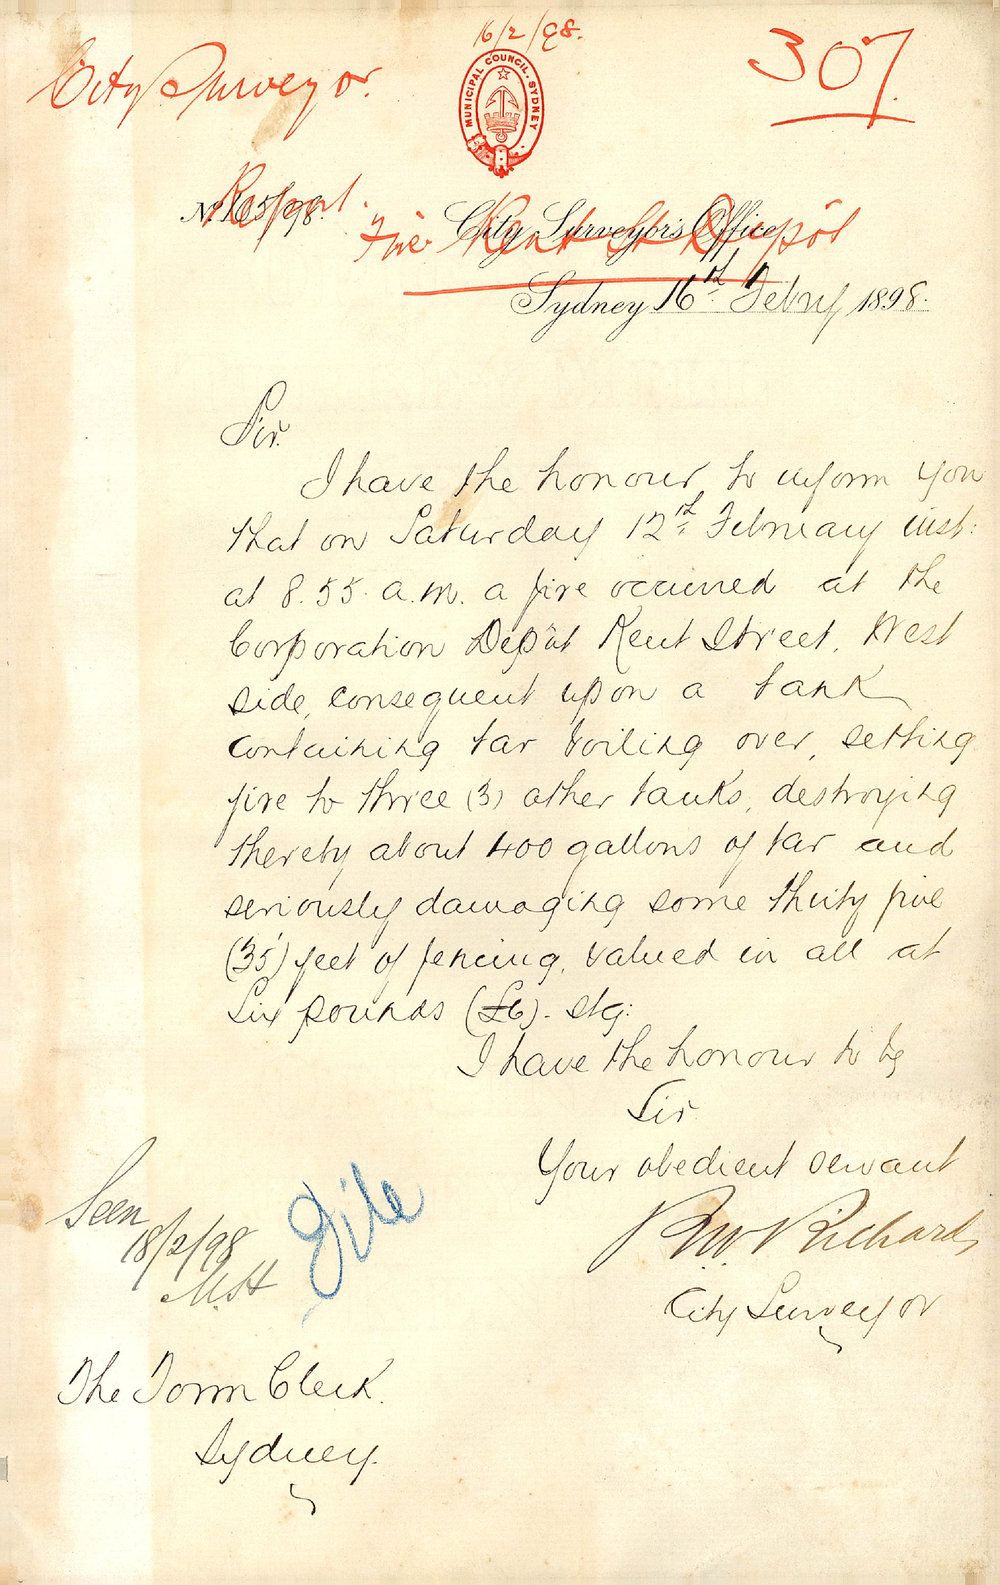 16/2/98.
City Surveyor.
307
MUNICIPAL COUNCIL. SYDNEY
Report.
No 165/98.
Fire Kent St Depôt
City Surveyor's Office,
Sydney 16th Febry 1898.
Sir.
I have the honour, to inform you
that on Saturday 12th February inst:
at 8.55. a.m. a fire occurred at the
Corporation Depôt Kent Street, West
side, consequent upon a tank
containing tar boiling over, setting
fire to three (3) other tanks, destroying
thereby about 400 gallons of tar and
seriously damaging some thirty five
(35) feet of fencing, valued in all at
Six pounds (£6). stg:
I have the honour to be
Sir
Your obedient servant
R.W. Richards
City Surveyor
Seen
18/2/98
File
The Town Clerk.
Sydney.